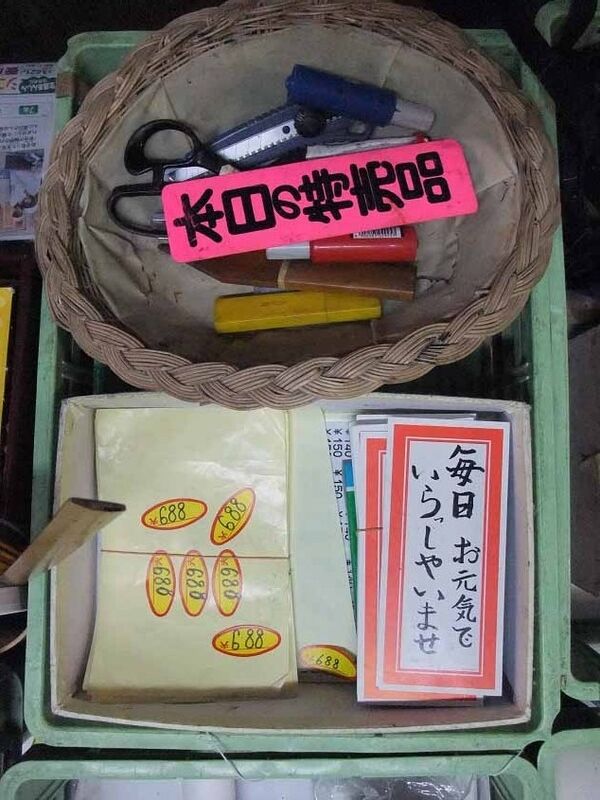 本日の特売品
毎日 お元気で
いらっしゃいませ
¥688
¥688
¥688
¥688
¥688
¥688
¥688
¥150
¥150